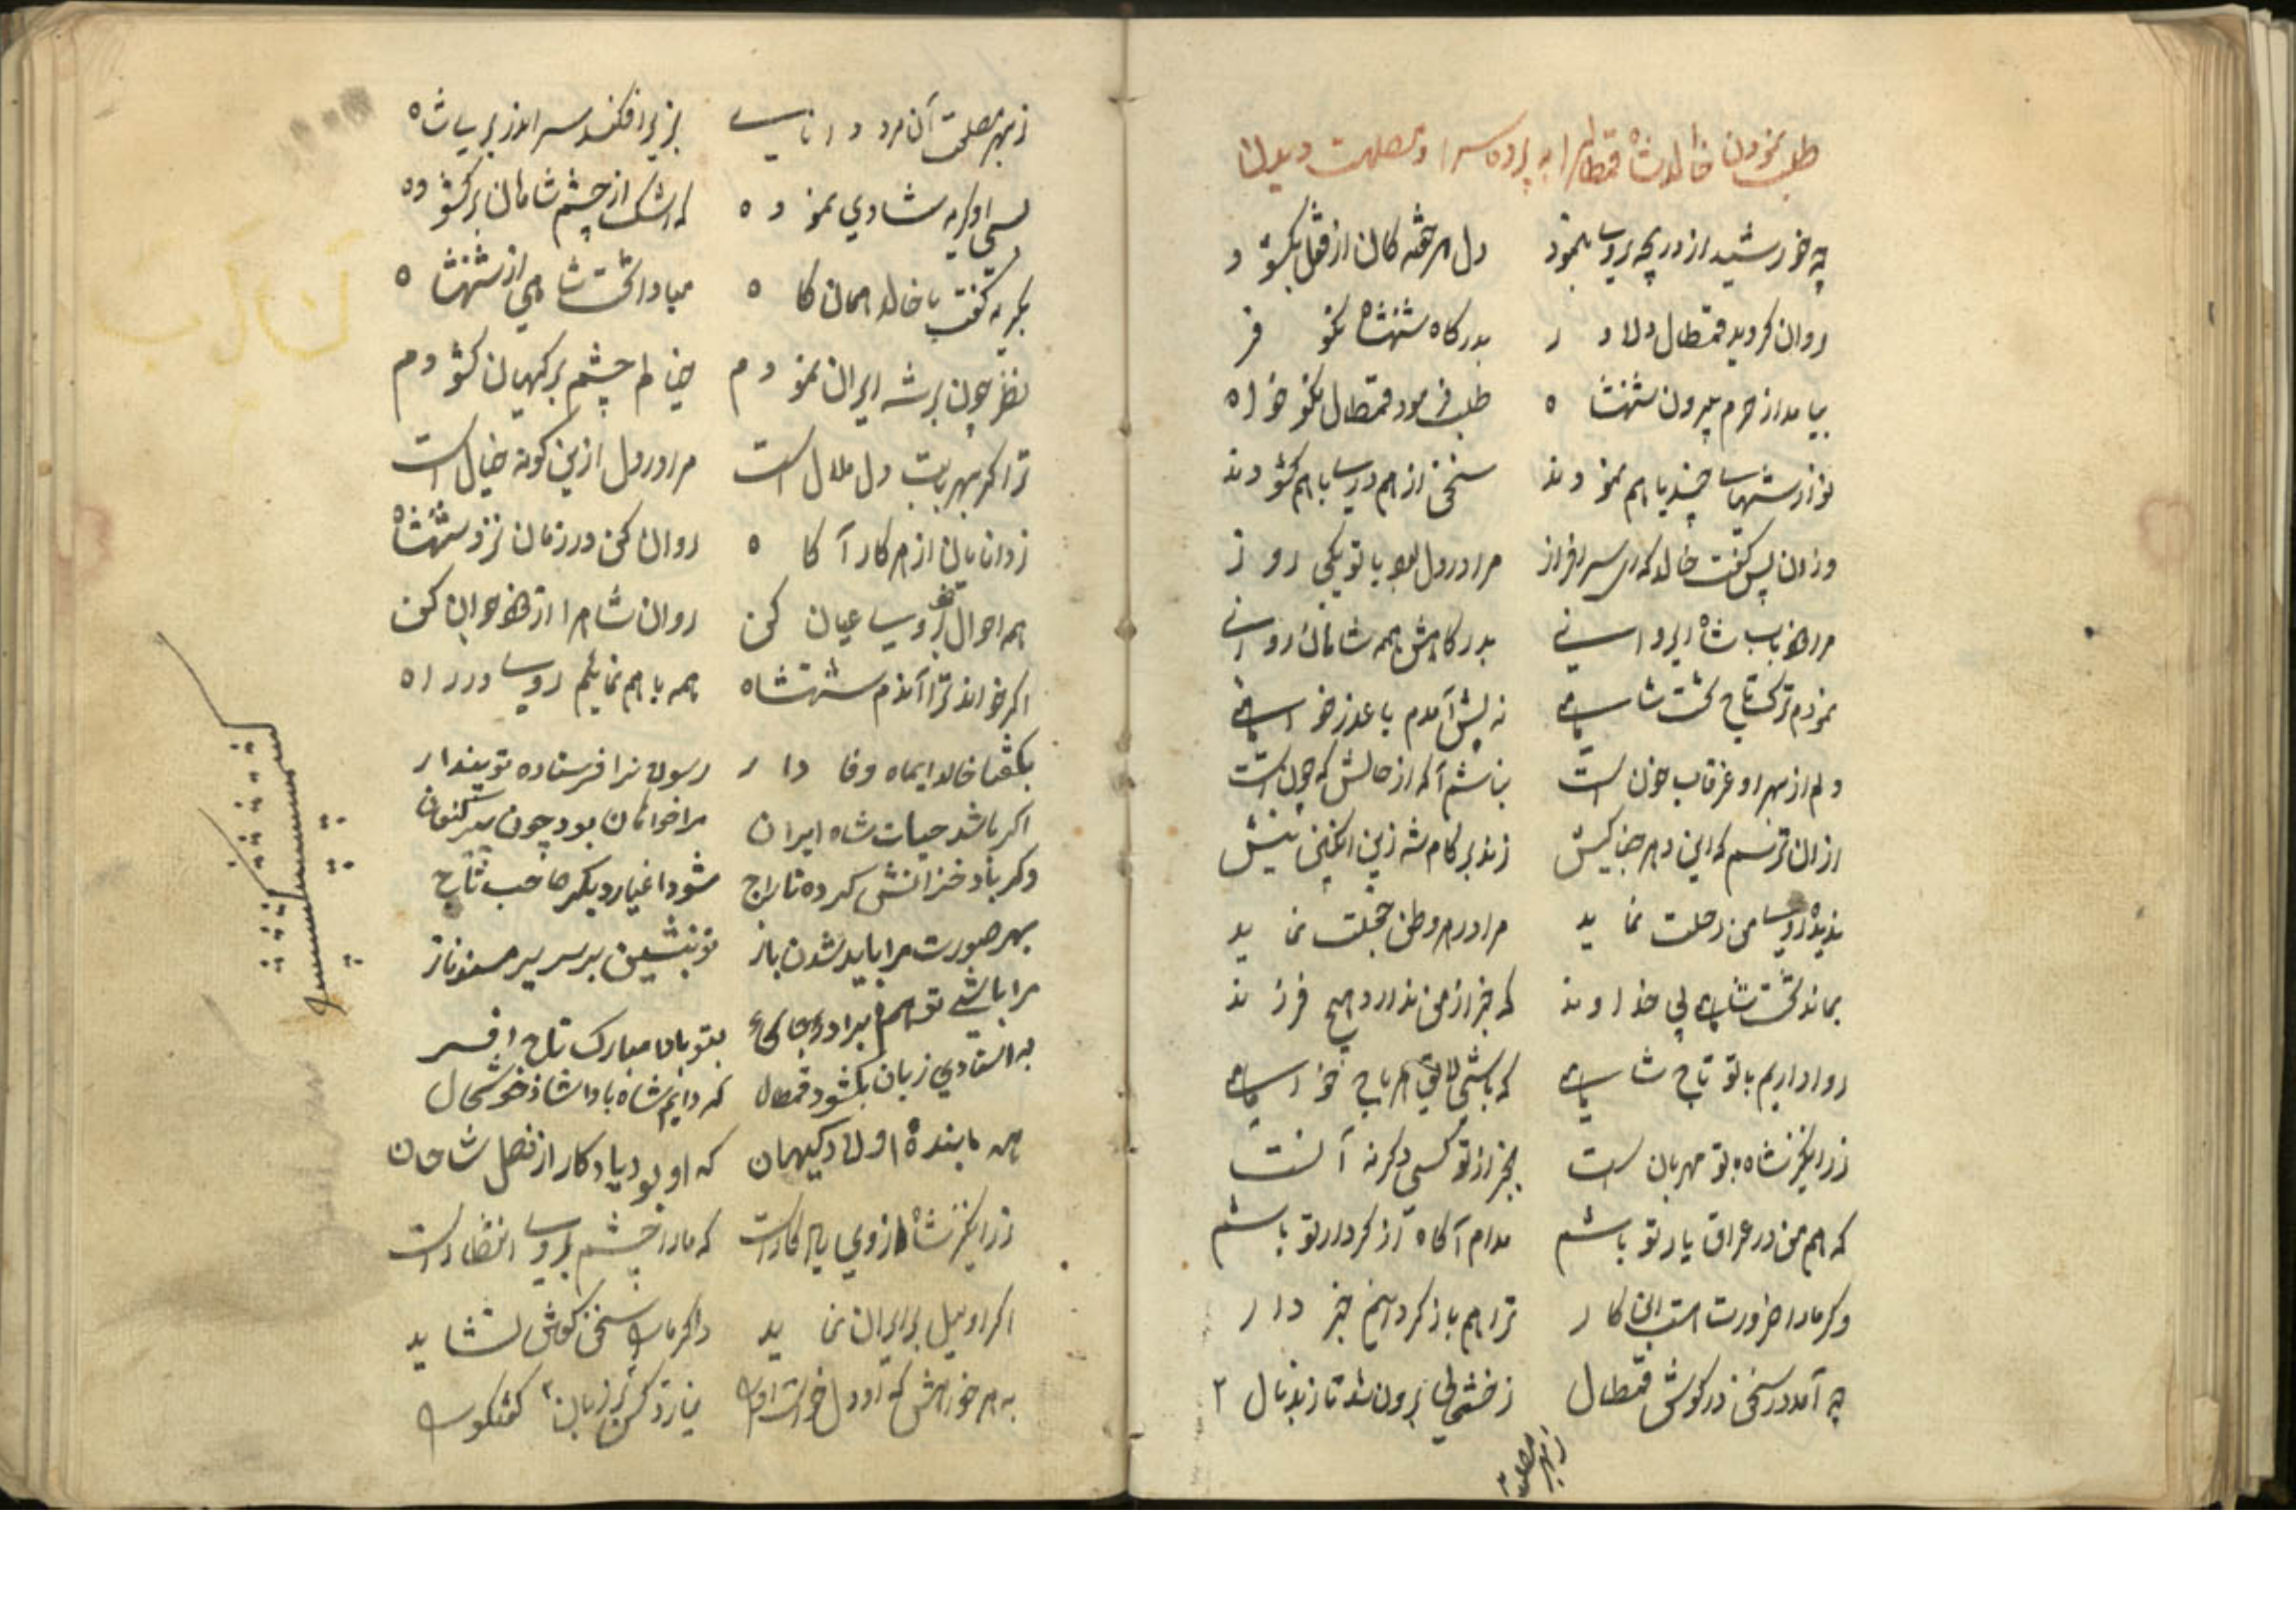 طلب نمودن خالدشاه قمطال را به پرده سرا و مصلحت دیدن
چه خورشید از دریچه روی بنمود دل هر خفته کان از قفل بکشود
روان کردید قمطال دلاور بدرکاه شهنشاه نکو فر
بیامد از حرم بیرون شهنشاه طلب فرمود قمطال نکو خواه
نوازشهای چند با هم نمودند سخن از هم دری با هم کشودند
وزان پس کفت خالد که ای سرافراز مرا در دل بود با تو یکی روز
بدرکاهش همه شاهان روانی
نمودم ترک تاج تخت شاهی نه پیش آمدم با عذر خواهی
دلم از بهر او غرقاب خون است بناشم آکه از حالش که چون است
ازان ترسم که این دهر جفا کیش زند بر کام شه زین انکبین نیش
ندیده روی من رحلت نماید مرا در هر وطن خجلت نماید
بماند تخت شاهی بی خداوند که جز از من ندارد هیچ فرزند
روا داریم با تو تاج شاهی که باشی لایق هر باج خواهی
زرا نیکر شاه بتو مهربان است بجز از تو کسی دکر نه آنست
که هم من در عراق یار تو باشم مدام آکاه از کردار تو باشم
وکر مارا ضرورت است این کار ترا هم باز کردانم خبر دار
چه آمد در سخن در کوش قمطال ز خشمی برون شد تا زبد بال
ز بهر مصلحت
ز بهر مصلحت آن مرد دانای بزیر افکند سر اندر بر پی شاه
بسی او کریه شادی نموده که اشک از چشم شاهان بر کشوده
بکریه کفت با خالد همان کاه مبادا تخت شاهی از شهنشاه
نظر چون بر شه ایران نمودم خیالم چشم بر کیهان کشودم
ترا کر بهر بابت دل ملال است مرا در دل ازین کونه خیال است
زدانایان از هر کار آکاه روان کن در زمان نزد شهنشاه
همه احوال خود بروی عیان کن روان شاه را از خود جوان کن
اکر خواند ترا آندم شهنشاه همه با هم نمائیم روی در راه
بکفتا خالد ایماه وفا دار رسولانرا فرستاده تو پندار
اکر باشد حیات شاه ایران مرا خواهان بود چون پیر کنعان
وکر باد خزانش کرده تاراج شود اغیار دیکر صاحب تاج
بهر صورت مرا باید شدن باز تو بنشین بر سریر مسند ناز
مرا باشی تو هم برادر بجای بتو بادا مبارک تاج افسر
به استادی زبان بکشود قمطال که دایم شاه بادا شاد خوشحال
همه ما بنده اولاد کیهان که او بود یادکار از نصل شاهان
زرا نیکر شاه از وی یادکار است که مارا چشم بروی انتظار است
اکر او میل بر ایران نماید دکر مارا سخن کوش نشاید
به هر خواهش که او دل خواست اوی نیارد کس بر زبان کفتکوی